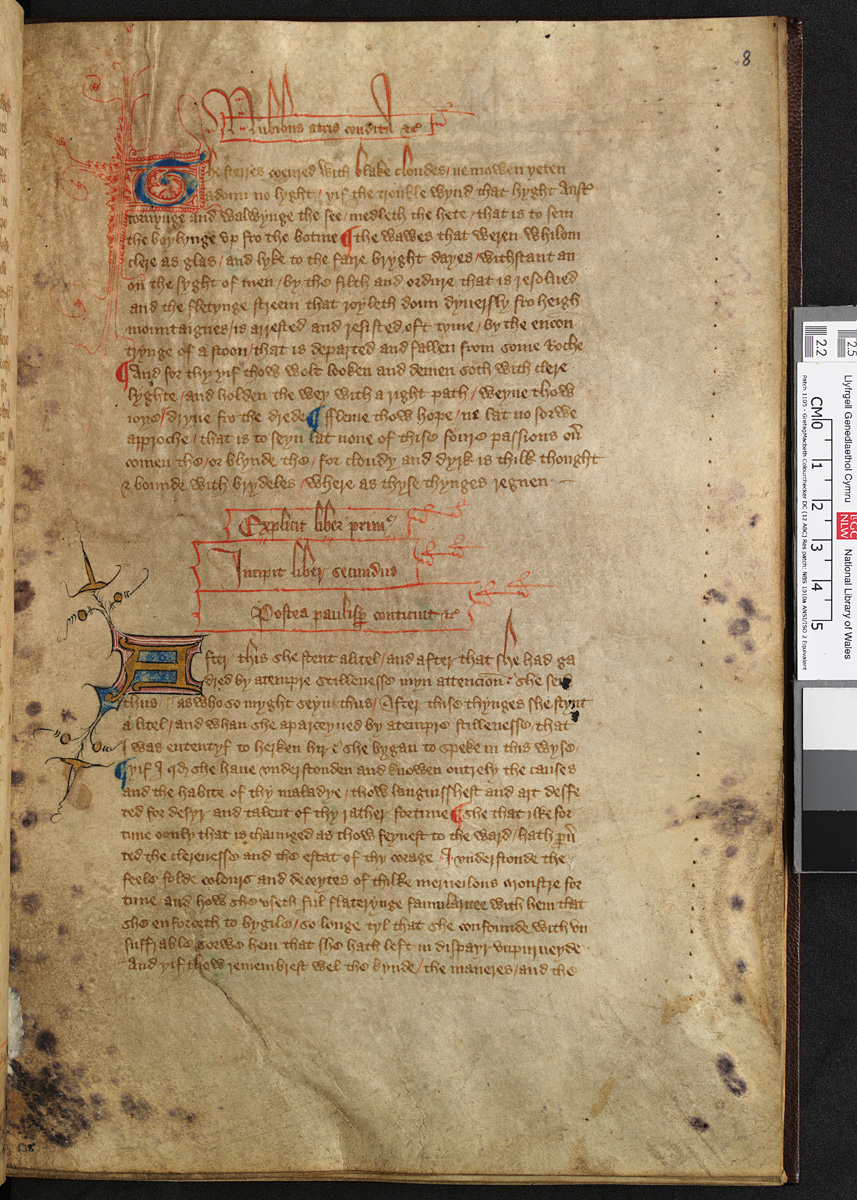 8
Nubibus atris condita &c
The sterres couered with blake cloudes / ne mowen yeten
adoun no lyght / yif the trouble wynd that hyght Aust
tornynge and walwynge the see / medleth the hete / that is to sein
the boylynge vp fro the botme ¶ the wawes that weren whilom
clere as glas / and lyke to the faire bryght dayes / withstant an
on the syght of men / by the filth and ordure that is resolued
and the fletynge streem that royleth doun dyuersly fro heigh
mountaignes / is arrested and resisted oft tyme / by the encon
trynge of a stoon / that is departed and fallen from some roche
¶ And for thy yif thow wolt looken and demen soth with clere
lyghte / and holden the wey with a right path / weyue thow
ioye / dryue fro the drede ¶ ffleme thow hope / ne lat no sorwe
approche / that is to seyn lat none of thise foure passions oū
comen the / or blynde the / for cloudy and dyrk is thilk thought
& bounde with brydeles / where as thyse thynges regnen
Explicit liber primus
Incipit liber secundus
Postea paulisper conticuit &c
After this she stent a litel / and after that she had ga
dred by atempre stillenesse myn attencion / she seid
thus / as who so myght seyn thus / After thise thynges she stynt
a litel / and whan she aparceyued by atempre stillenesse / that
I was ententyf to herken hire she bygan to speke in this wyse
¶ yif I qd she haue vnderstonden and knowen outrely the causes
and the habite of thy maladye / thow languisshest and art deffe
ted for desyr and talent of thy rather fortune ¶ she that ilke for
tune oonly that is chaunged as thow feynest to the ward / hath pū
ted the clerenesse and the estat of thy corage I vnderstonde the
feele folde colours and deceytes of thilke merueilous monstre for
tune and how she vseth ful flaterynge familaritee with hem that
she enforceth to bygile / so longe tyl that she confounde with vn
suffrable sorwe hem that she hath left in dispayr vnpurueyde
And yif thow remembrest wel the kynde / the maneres / and the
8
2.2
2.5
CM 0 1 2 3 4 5
Llyfrgell Genedlaethol Cymru
LLGC
NLW
National Library of Wales